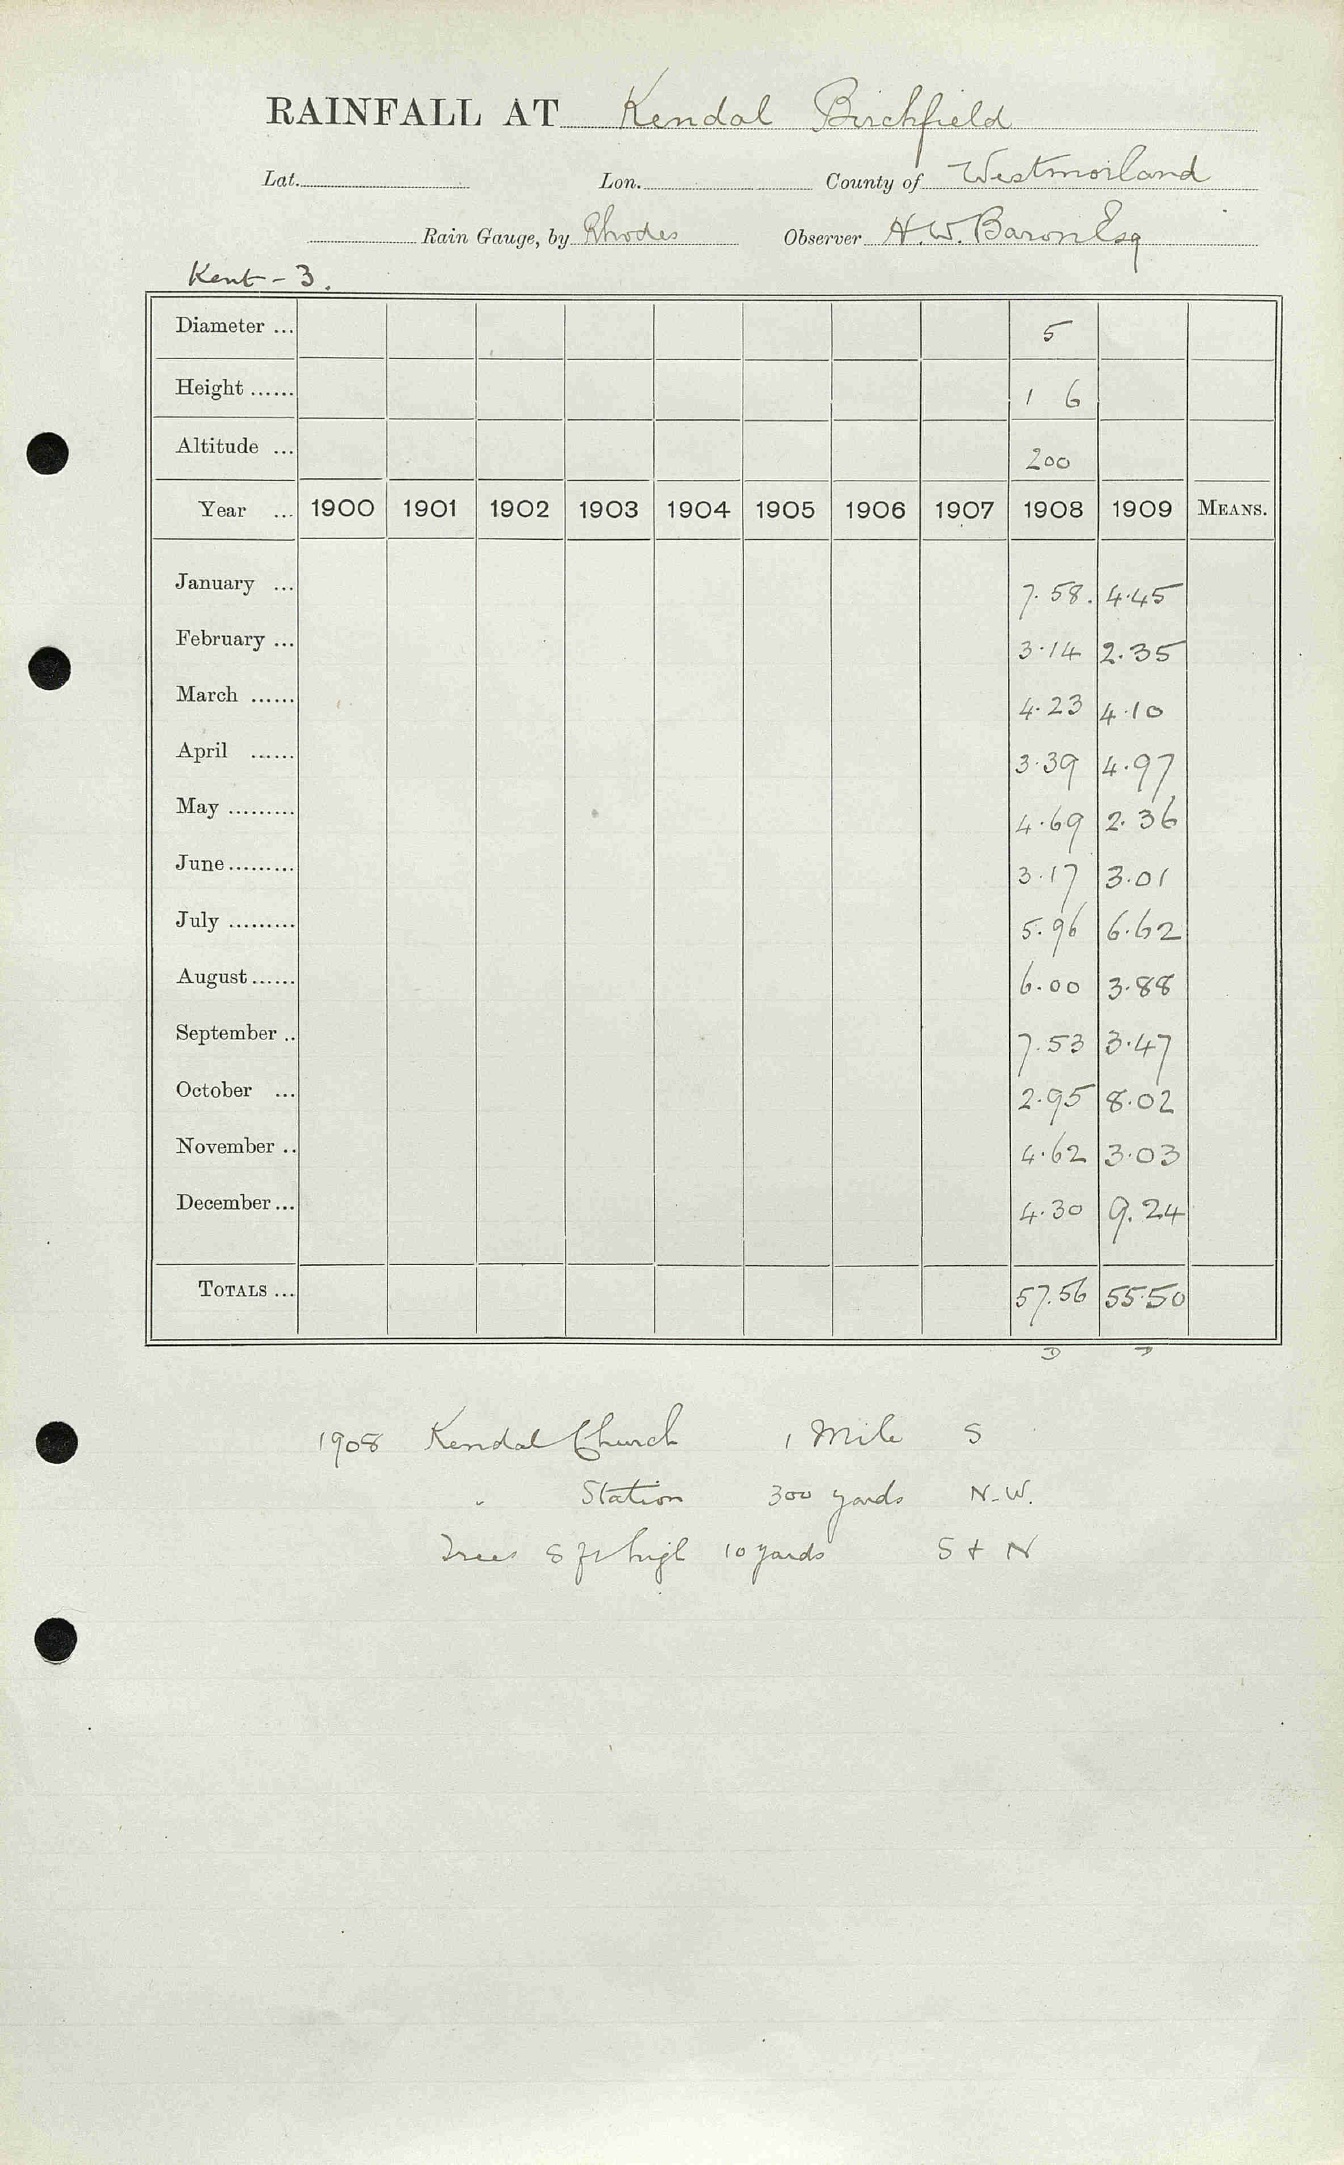 RAINFALL AT Kendal Birchfield
Lat. Lon. County of Westmorland
Rain Gauge, by Rhodes Observer H.W. Baron Esq
Kent - 3.
Diameter ... 5
Height ...... 1 6
Altitude ... 200
Year ... 1900 1901 1902 1903 1904 1905 1906 1907 1908 1909 MEANS.
January ... 7.58. 4.45
February ... 3.14 2.35
March ...... 4.23 4.10
April ...... 3.39 4.97
May ......... 4.69 2.36
June ......... 3.17 3.01
July ......... 5.96 6.62
August ...... 6.00 3.88
September .. 7.53 3.47
October ... 2.95 8.02
November .. 4.62 3.03
December ... 4.30 9.24
TOTALS ... 57.56 55.50
1908 Kendal Church 1 Mile S
" Station 300 yards N-W.
Trees 8 ft high 10 yards S & N